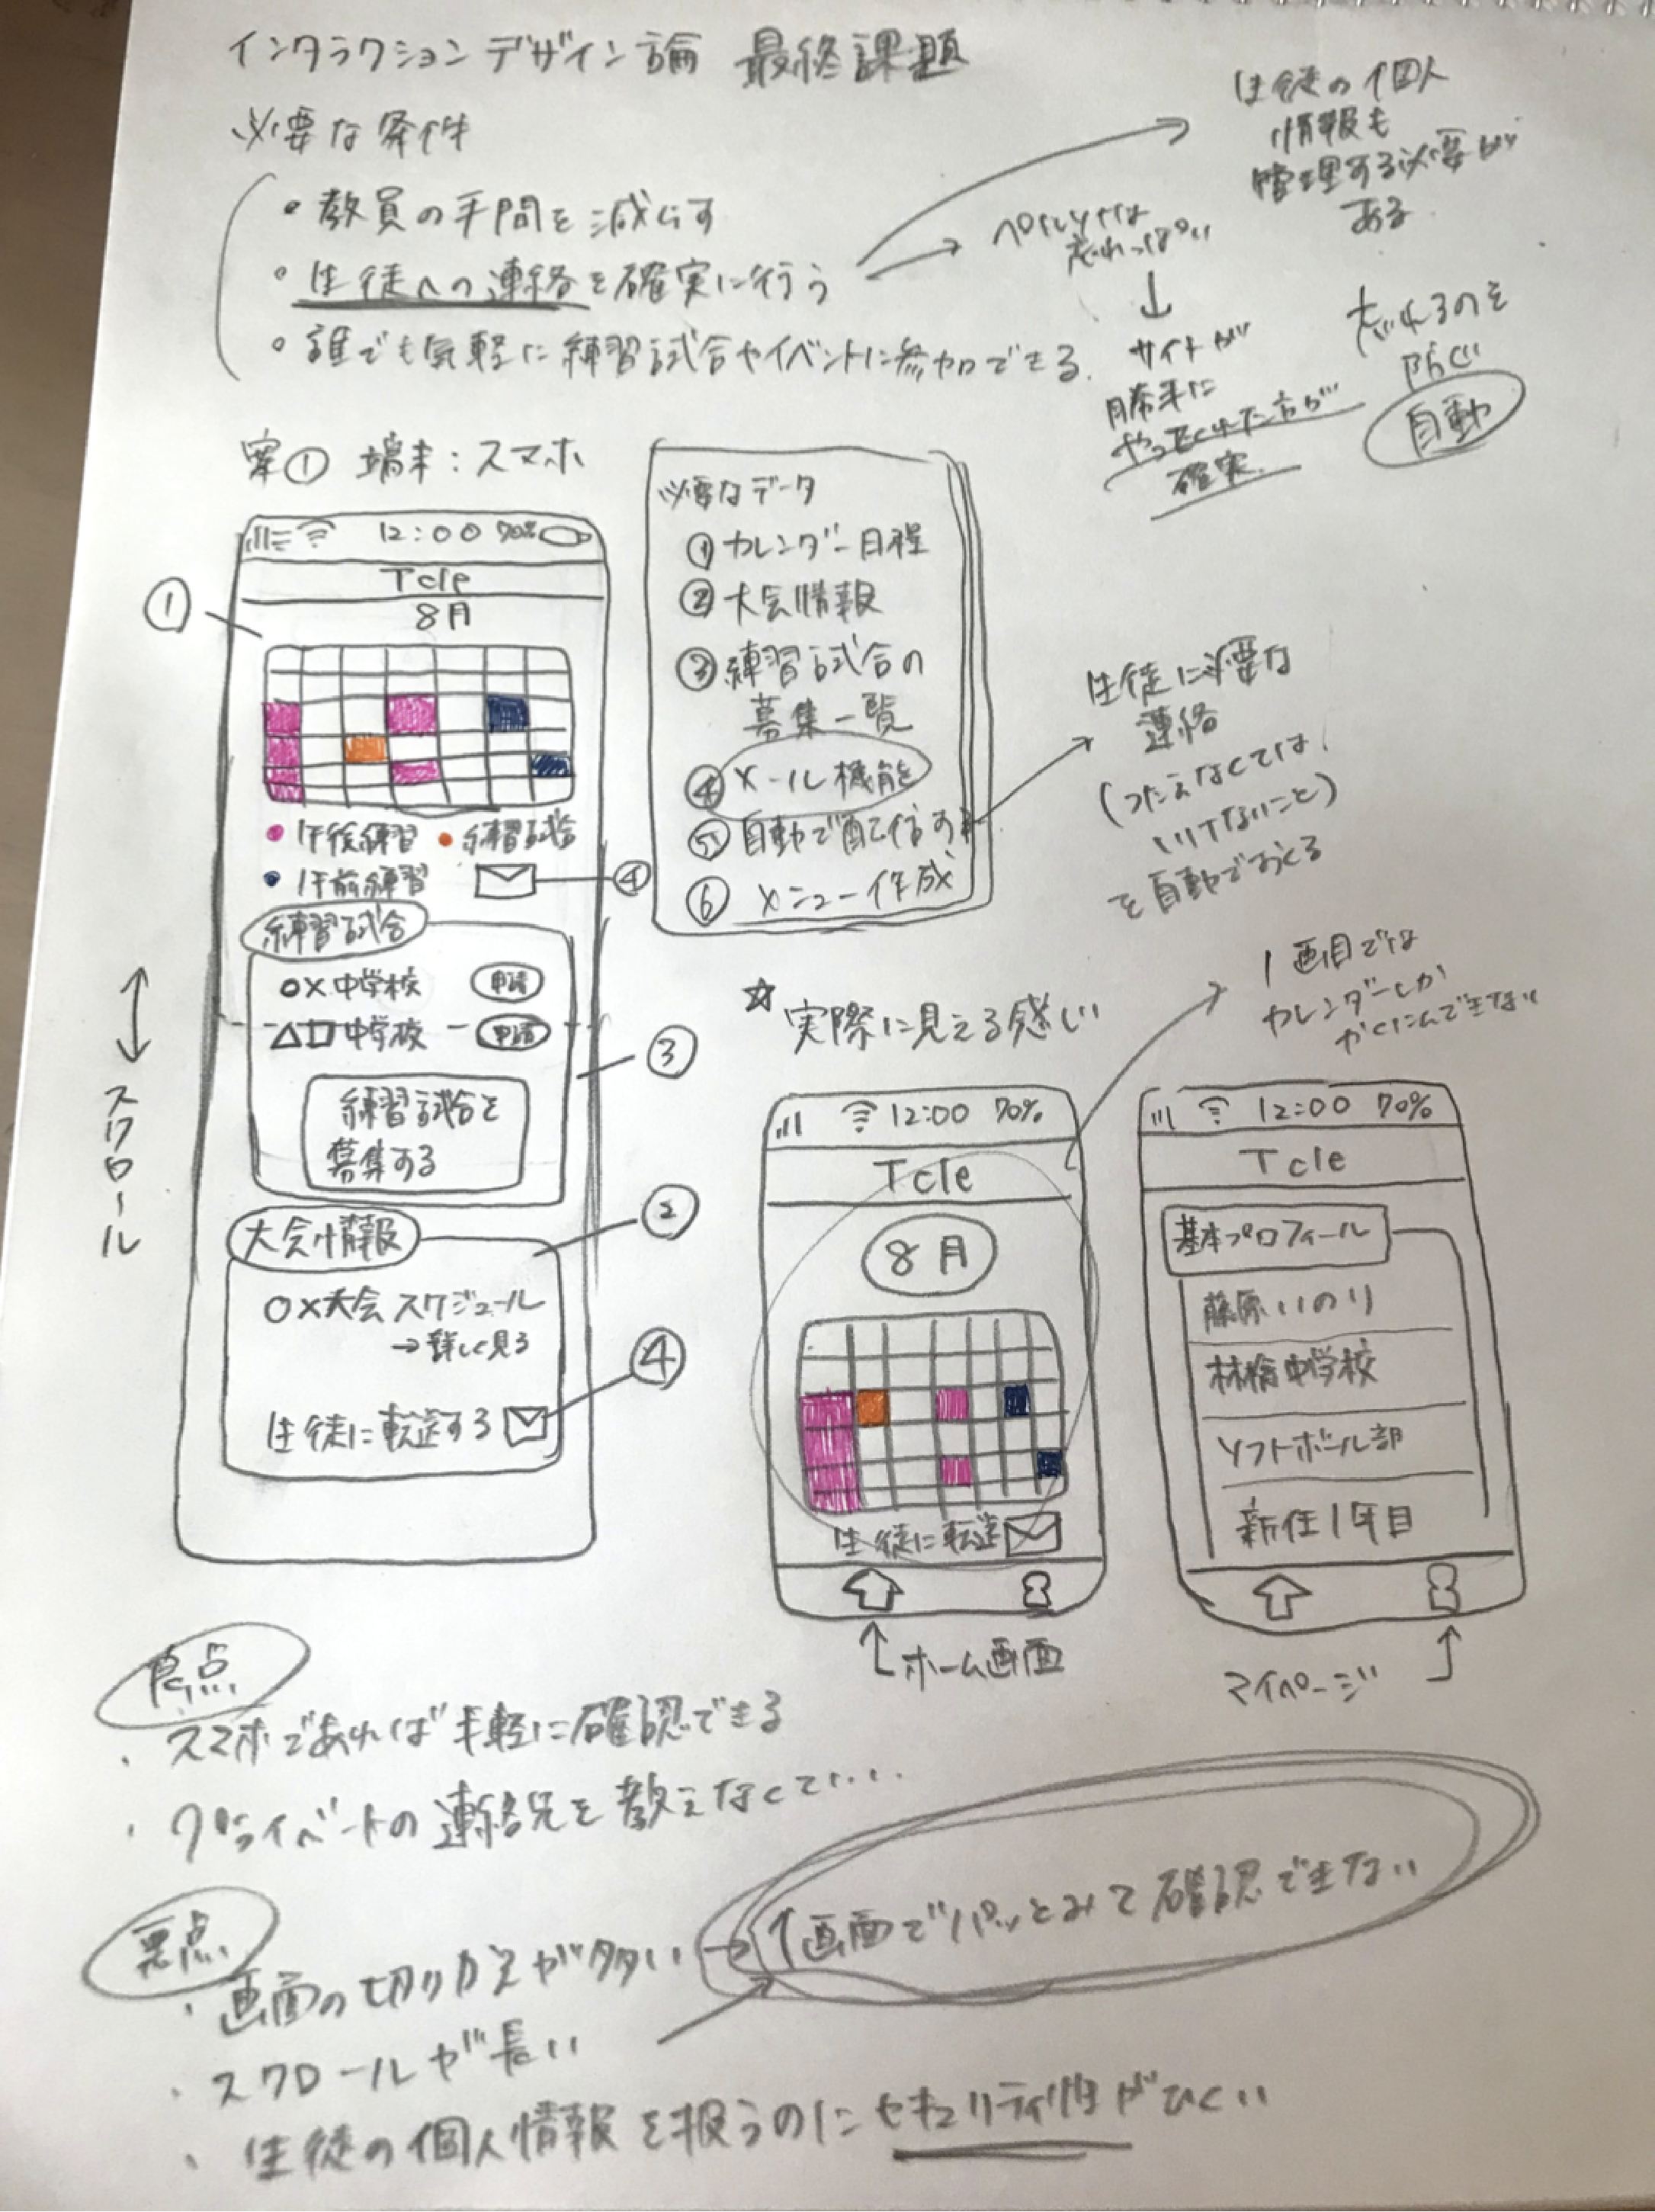 インタラクションデザイン論 最終課題
必要な条件
・教員の手間を減らす
・生徒への連絡を確実に行う
・誰でも気軽に練習試合やイベントに参加できる.
生徒の個人
情報も
管理する必要が
ある
ペルソナは
忘れっぽい
↓
サイトが
勝手に
やってくれた方が
確実.
忘れるのを
防ぐ
自動
案① 端末:スマホ
12:00 70%
Tcle
8月
①
・午後練習 ・練習試合
・午前練習
④
練習試合
○×中学校 申請
△□中学校 申請
③
練習試合を
募集する
大会情報
②
○×大会 スケジュール
→詳しく見る
生徒に転送する
④
↕
スクロール
必要なデータ
①カレンダー日程
②大会情報
③練習試合の
募集一覧
④メール機能を
⑤自動で配信する
⑥メニュー作成
生徒に必要な
連絡
(つたえなくては
いけないこと)
を自動でおくる
☆実際に見える感じ
1画目では
カレンダーしか
かくにんできない
12:00 70%
Tcle
8月
生徒に転送
ホーム画面
12:00 70%
Tcle
基本プロフィール
藤原いのり
林檎中学校
ソフトボール部
新任1年目
マイページ
良点
・スマホであれば手軽に確認できる
・プライベートの連絡先を教えなくていい.
悪点
・画面の切りかえが多い → 1画面でパッとみて確認できない
・スクロールが長い
・生徒の個人情報を扱うのにセキュリティ性がひくい